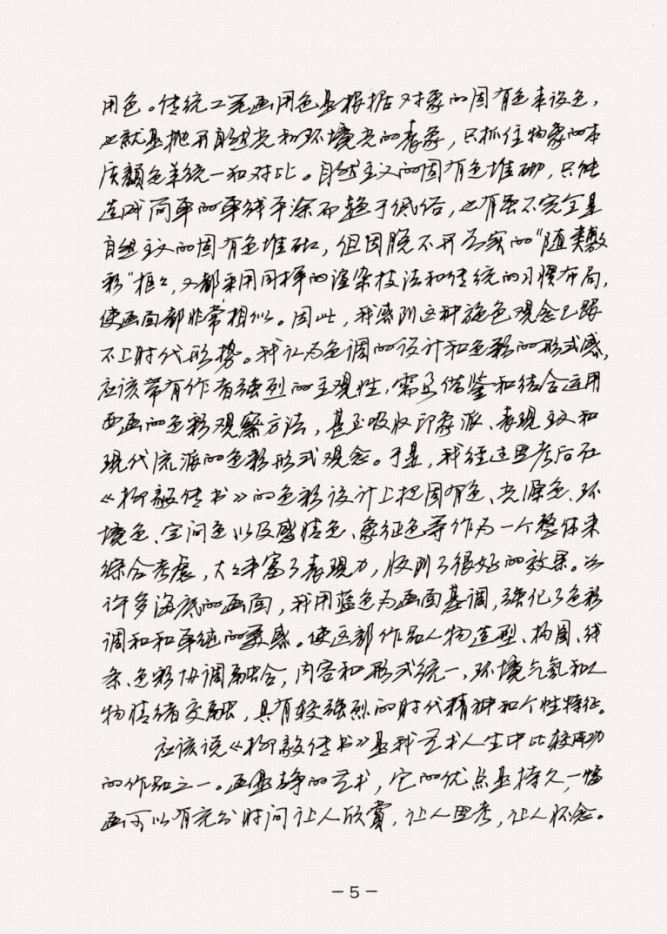 用色。传统工笔画用色是根据对象的固有色来设色，
也就是抛开自然光和环境光的表象，只抓住物象的本
质颜色来统一和对比。自然主义的固有色堆砌，只能
造成简单的单线平涂而趋于低俗，也有虽不完全是
自然主义的固有色堆砌，但因脱不开的"随类敷
彩"框框，又都采用同样的渲染技法和传统的习惯布局，
使画面都非常相似。因此，我感到这种施色观念已跟
不上时代形势。我认为色调的设计和色彩的形式感，
应该带有作者强烈的主观性，需要借鉴和结合运用
西画的色彩观察方法，甚至吸收印象派、表现主义和
现代流派的色彩形式观念。于是，我经过思考后在
《柳毅传书》的色彩设计上把固有色、光源色、环
境色、空间色以及感情色、象征色等作为一个整体来
综合考虑，大大丰富了表现力，收到了很好的效果。
许多海底的画面，我用蓝色为画面基调，强化了色彩
调和和单纯的美感。使这部作品人物造型、构图、线
条、色彩协调融合，内容和形式统一，环境气氛和人
物情绪交融，具有较强烈的时代精神和个性特征。
应该说《柳毅传书》是我艺术人生中比较成功
的作品之一。画是静的艺术，它的优点是持久，一幅
画可以有充分时间让人欣赏，让人思考，让人怀念。
－5－